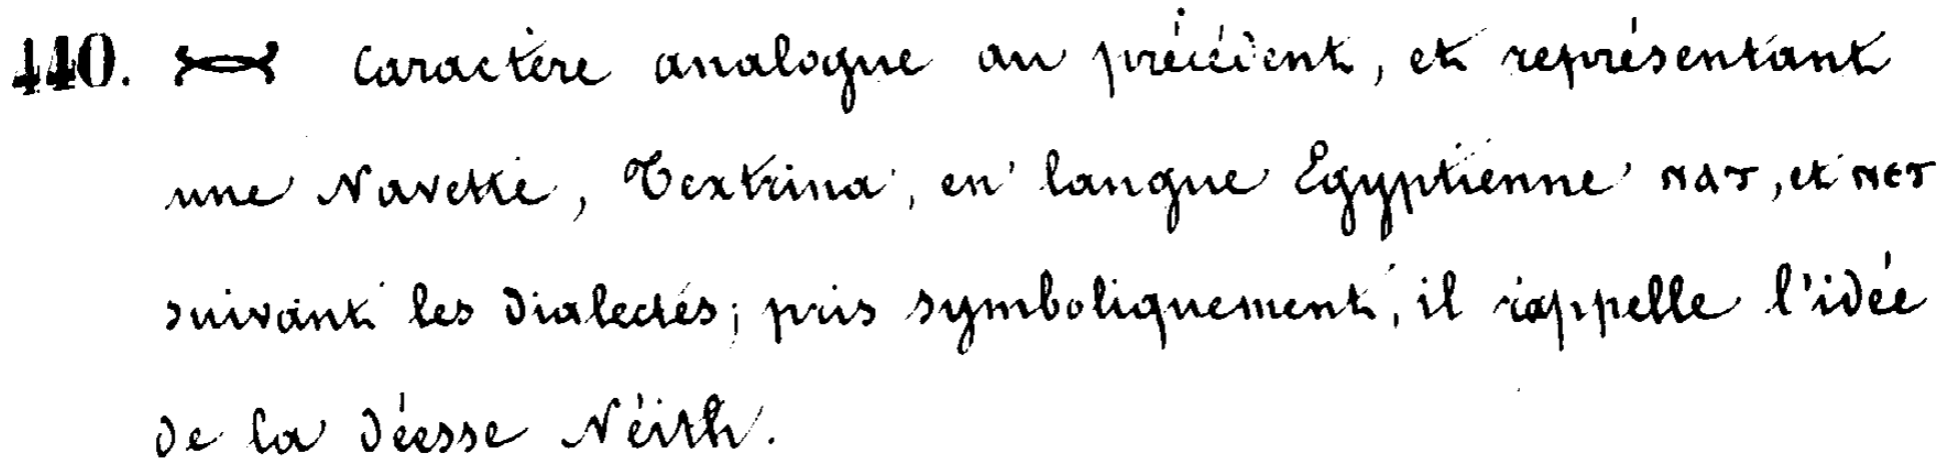 440. caractère analogue au précédent, et représentant
une Navette, Textrina, en langue Egyptienne ⲛⲁⲧ, et ⲛⲉⲧ
suivant les dialectes; pris symboliquement, il rappelle l'idée
de la déesse Néith.